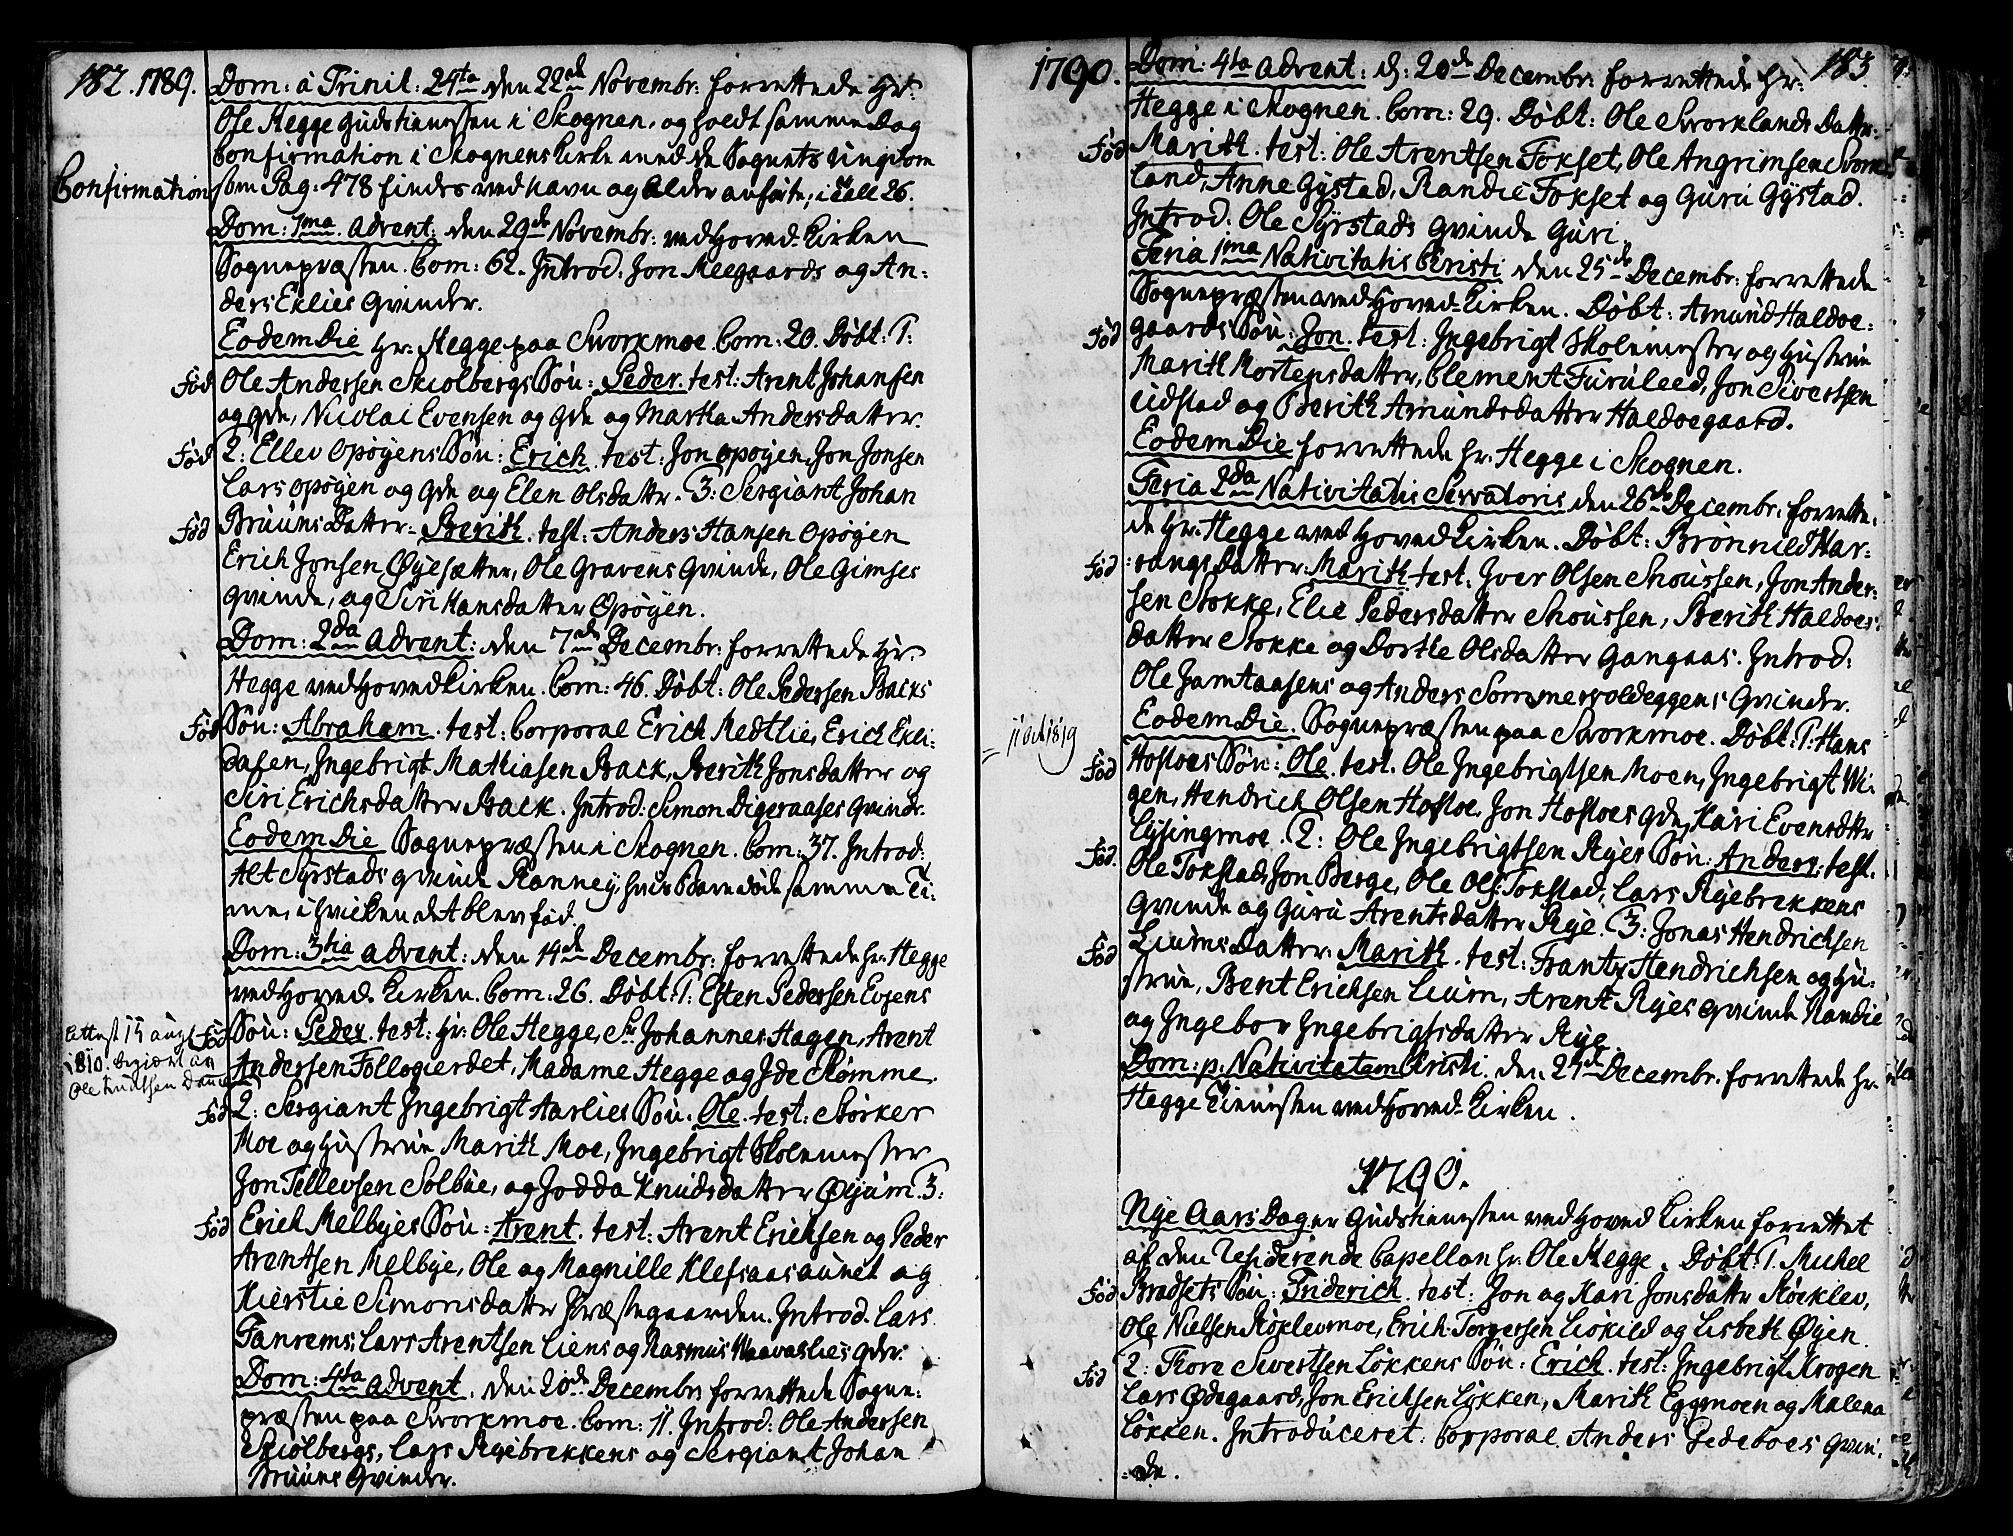 182. 1789.
Dom: à Trinit: 24ta den 22de Novembr: forrettede Hr:
Ole Hegge Gudstienesten i Skognen, og holdt samme Dag
Confirmation i Skognens Kirke med de Sognets Ungdom
Confirmation
som Pag: 478 findes ved navn og Alder anførte, i tall 26.
Dom: 1ma advent: den 29de Novembr: ved Hoved-Kirken
Sognepræsten. Com: 62. Introd: Jon Meegaards og An-
ders Eklies Qvinder.
Eodem Die Hr: Hegge paa Svorkmoe. Com: 20. Døbt: 1:
Fød Ole Andersen Skiolbergs Søn: Peder. test: Arent Johansen
og Qde, Nicolai Evensen og Qde og Martha Andersdatter.
Fød 2: Ellev Opøyens Søn: Erich. test: Jon opøyen, Jon Jonsen
Lars opøyen og Qde og Elen Olsdattr. 3: Sergiant Johan
Fød Bruuns Datter: Berith. test: Anders Hansen Opøyen
Erich Jonsen Øyesætter, Ole Gravens Qvinde, Ole Gimses
Qvinde, og Siri Hansdatter Opøyen.
Dom: 2da advent: den 7de Decembr: forrettede Hr:
Hegge ved Hoved Kirken. Com: 46. Døbt: Ole Pedersen Backs
Fød Søn: Abraham. test: Corporal Erich Medtlie, Erich Ekli-
Dasen, Ingebrigt Mathiasen Back, Berith Jonsdatter og
Siri Erichsdatter Back. Introd: Simon Digeraases Qvinde.
Eodem Die Sognepræsten i Skognen. Com: 37. Introd:
Alt Syrstads Qvinde Ranney, hvis Barn døde samme Ti-
me, i hvilken det blev fød.
Dom: 3tia advent: den 14de Decembr: forrettede hr: Hegge
ved Hoved-Kirken. Com: 26. Døbt: 1: Esten Pedersen Evjens
Attest 15 augt Fød Søn: Peder. test: Hr: Ole Hegge, Sr Johannes Hagen, Arent
1810. begiært af
Andersen Follogierdet, Madame Hegge og Ide Rømme.
Ole Knudsen
Fød 2: Sergiant Ingebrigt Aarlies Søn: Ole. test: Størker
Moe og Hustrue Marith Moe, Ingebrigt Skolemester
Jon Tellevsen Solbue, og Jodda Knudsdatter Øyum. 3:
Fød Erich Melbyes Søn: Arent. test: Arent Erichsen og Peder
Arentsen Melbye, Ole og Magnille Klefsaasaunet og
Kierstie Simonsdatter Præstegaarden. Introd: Lars
Fanrems, Lars Arentsen Liens og Rasmus Waavaslies Qder.
Dom: 4ta advent: den 20de Decembr forrettede Sogne-
præsten paa Svorkmoe. Com: 11. Introd: Ole Andersen
Skiolbergs, Lars Ryebrekkens og Sergiant Johan
Bruuns Qvinder.
1790. 183
Dom: 4ta advent: d: 20de Decembr: forrettede hr:
Hegge i Skognen. Com: 29. Døbt: Ole Svorklands Datter:
Fød Marith. test: Ole Arentsen Fokset, Ole Angrimsen Svork-
land, Anne Gystad, Randie Fokset og Guru Gystad.
Introd: Ole Syrstads Qvinde Guri.
Feria 1ma Nativitatis Christi den 25de Decembr: forrettede
Sognepræsten ved Hoved-Kirken. Døbt: Amund Haldoe-
Fød gaards Søn: Jon. test: Ingebrigt Skolemester og Hustrue
Marith Mortensdatter, Clement Furuleed, Jon Sivertsen
Udstad og Berith Amundsdatter Haldoegaard.
Eodem Die forrettede hr: Hegge i Skognen.
Feria 2da Nativitatis Servatoris den 26de Decembr: forrette-
de Hr: Hegge ved Hoved Kirken. Døbt: Brønnild War-
Fød rangs Datter: Marith. test: Iver Olsen Snoussen, Jon Ander-
sen Stokke, Elie Pedersdatter Snoussen, Berith Haldoes-
datter Stokke og Dorthe Olsdatter Gangaas. Introd:
Ole Jamtaasens og Anders Sommervoldeggens Qvinder.
Eodem Die. Sognepræsten paa Svorkmoe. Døbt: 1: Hans
Fød Hofloes Søn: Ole. test: Ole Ingebrigtsen Moen, Ingebrigt Wi-
gen, Hendrich Olsen Hofloe, Jon Hofloes Qde, Kari Evensdttr
Lysingmoe. 2: Ole Ingebrigtsen Ryes Søn: Anders. test:
Fød Ole Tokstad, Jon Berge, Ole Ols: Tokstad, Lars Ryebrekkens
Qvinde og Guru Arentsdatter Rye. 3: Jonas Hendrichsen
Fød Liums Datter: Marith. test: Frantz Hendrichsen og Hu-
strue, Bent Erichsen Lium, Arent Ryes Qvinde Randie
og Ingebor Ingebrigtsdatter Rye.
Dom: p: Nativitatem Christi. den 27de Decembr. forrettede hr.
Hegge Tienesten ved Hoved-Kirken.
1790.
Nye Aars Dag er Gudstienesten ved Hoved Kirken forrettet
af den Residerende Capellan hr: Ole Hegge. Døbt: 1. Michel
Fød Bradsets Søn: Friderich. test: Jon og Kari Jonsdattr Røcklev,
Ole Nielsen Røklevmoe, Erich Torgersen Liokild og Lisbeth Øyen.
Fød 2: Thore Sivertsen Løkkens Søn: Erich. test: Ingebrigt Krogen
Lars Ødegaard, Jon Erichsen Løkken, Marith Eggmoen og Malena
Løkken. Introduceret: Corporal Anders Gedeboes Qvin-
de.